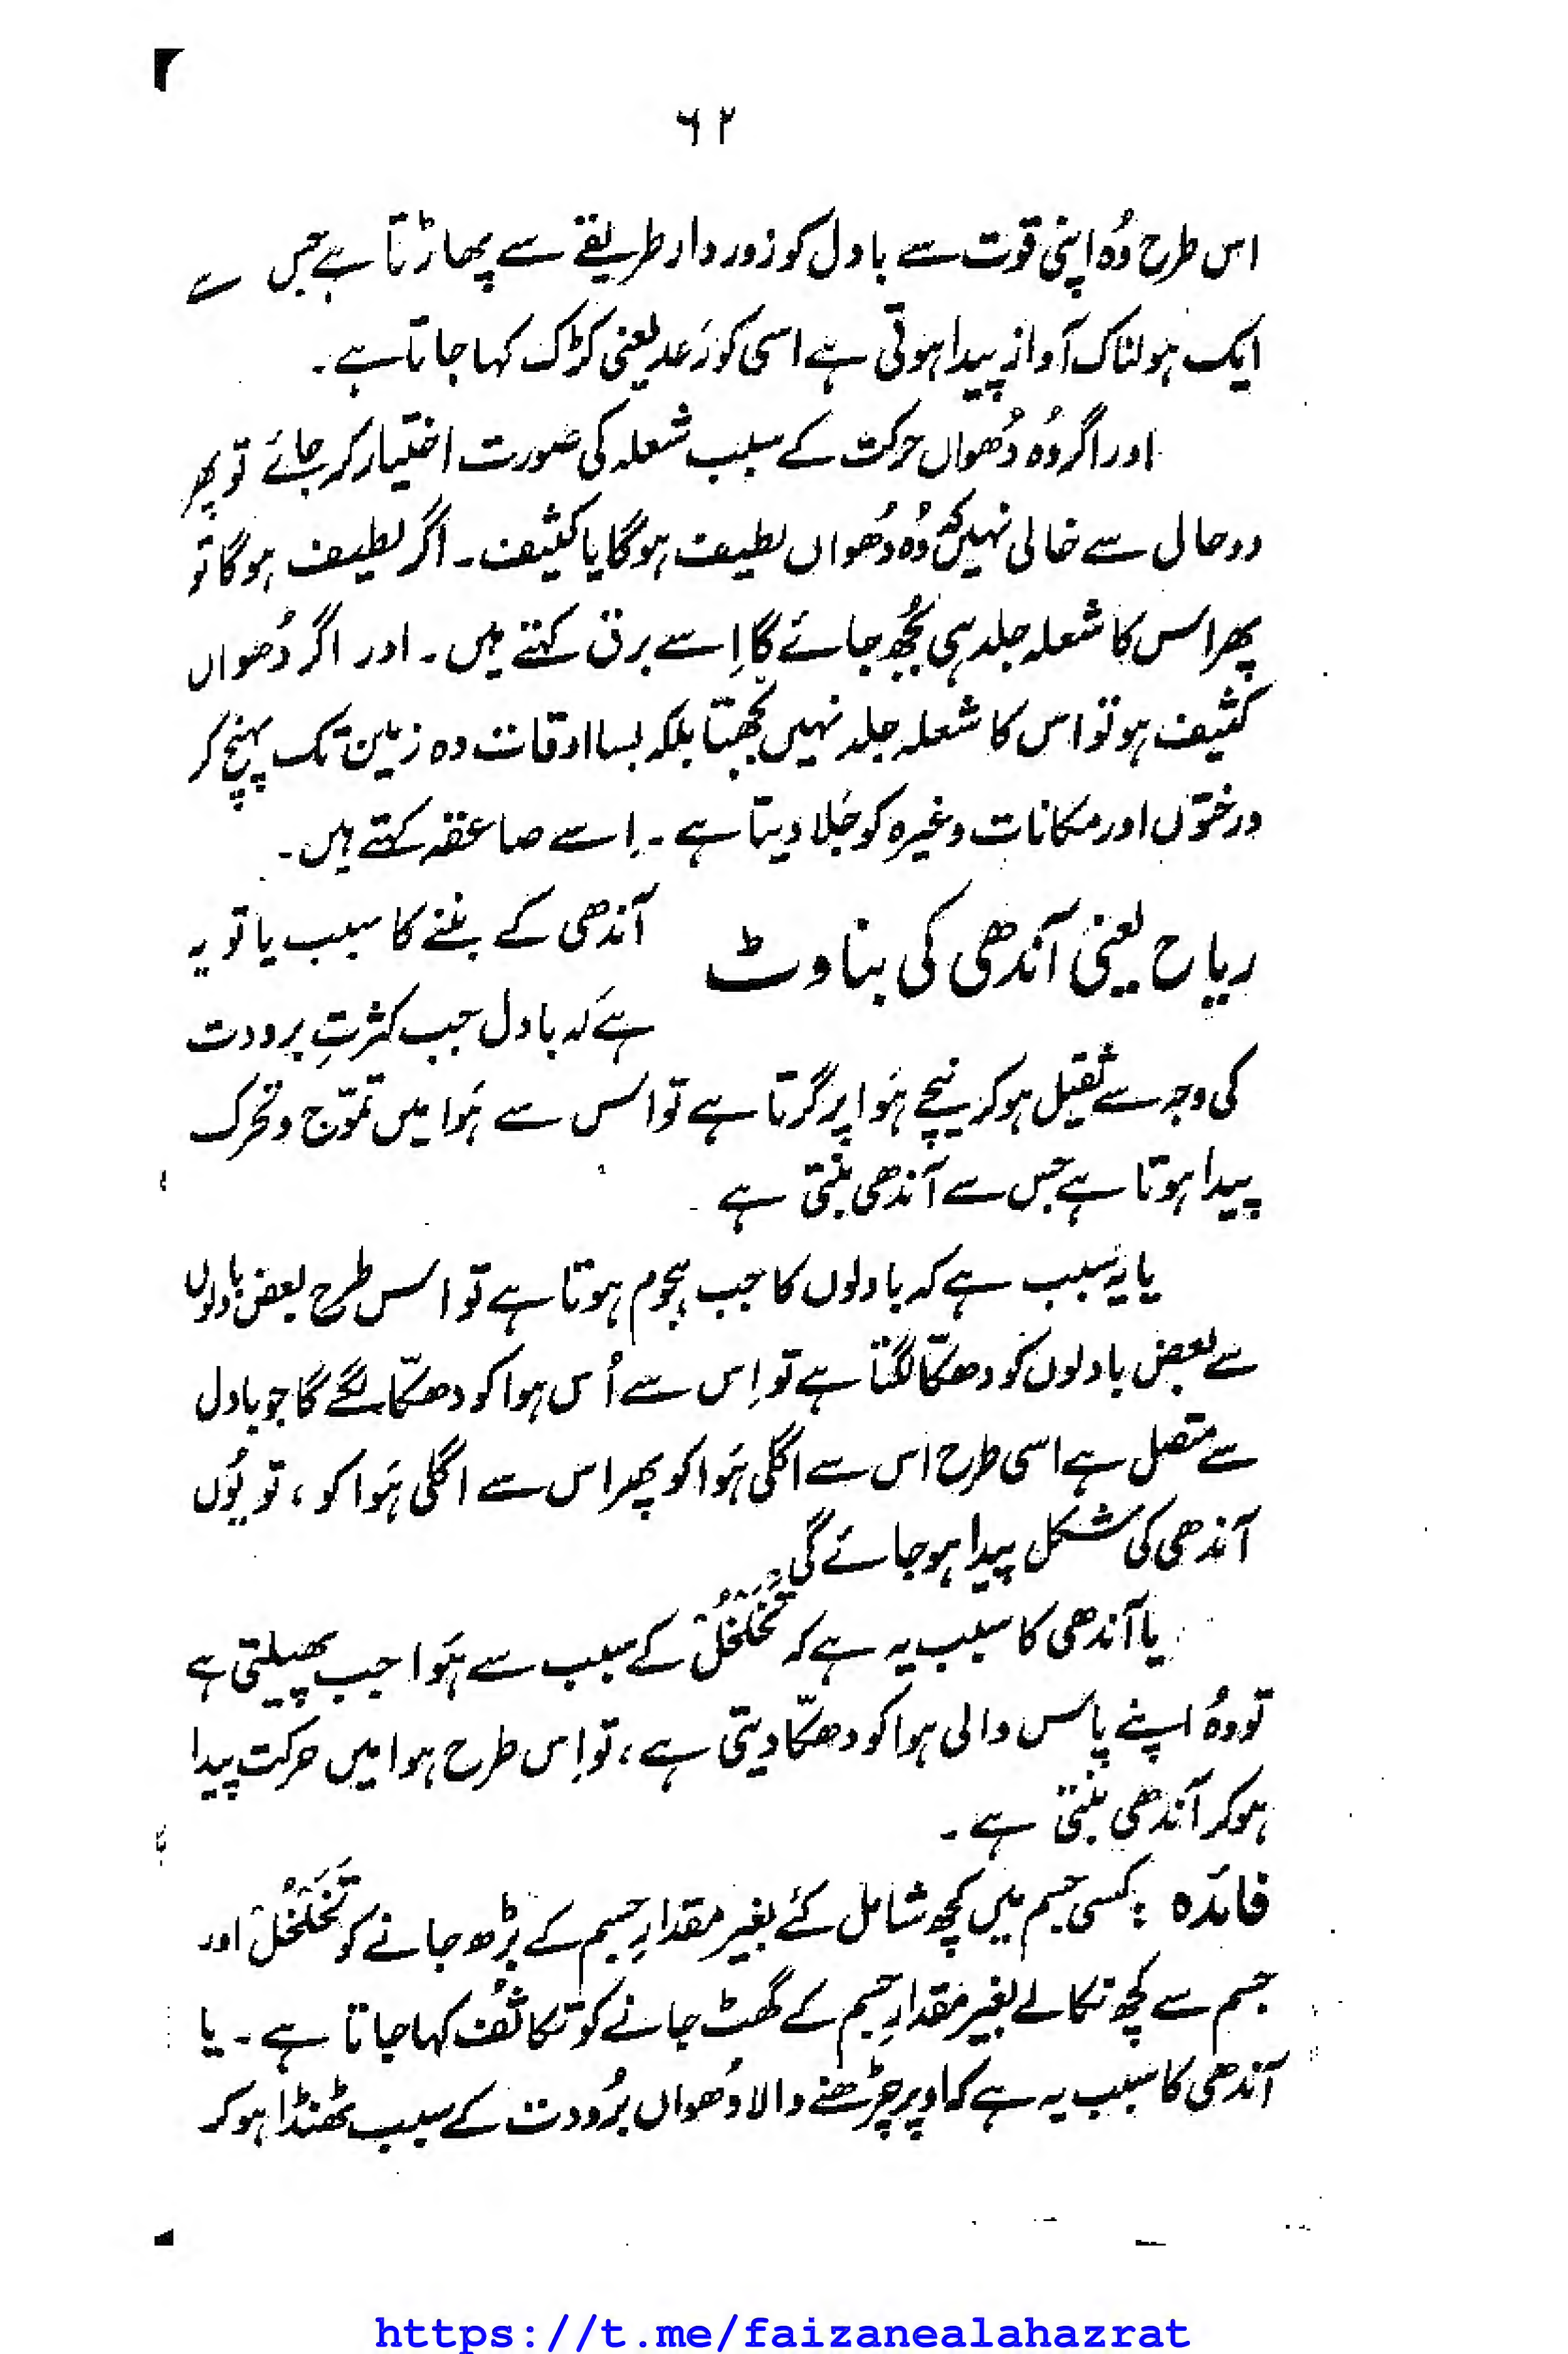 ۶۲
اس طرح وُہ اپنی قوت سے بادل کو زور دار طریقے سے پھاڑتا ہے جس سے
ایک ہولناک آواز پیدا ہوتی ہے اسی کو رَعد یعنی کڑک کہا جاتا ہے۔
اور اگر وُہ دُھواں حرکت کے سبب شعلہ کی صورت اختیار کر جائے تو پھر
دو حال سے خالی نہیں کہ وُہ دُھواں لطیف ہوگا یا کثیف۔ اگر لطیف ہوگا تو
پھر اس کا شعلہ جلد ہی بُجھ جائے گا اِسے برق کہتے ہیں۔ اور اگر دُھواں
کثیف ہو تو اس کا شعلہ جلد نہیں بُجھتا بلکہ بسا اوقات وہ زمین تک پہنچ کر
درختوں اور مکانات وغیرہ کو جَلا دیتا ہے۔ اِسے صاعقہ کہتے ہیں۔
ریاح یعنی آندھی کی بناوٹ
آندھی کے بننے کا سبب یا تو یہ
ہے کہ بادل جب کثرتِ برودت
کی وجہ سے ثقیل ہو کر نیچے ہَوا پر گرتا ہے تو اس سے ہَوا میں تموّج و تحرک
پیدا ہوتا ہے جس سے آندھی بنتی ہے
یا یہ سبب ہے کہ بادلوں کا جب ہجوم ہوتا ہے تو اس طرح بعض بادلوں
سے بعض بادلوں کو دھکّا لگتا ہے تو اِس سے اُس ہوا کو دھکّا لگے گا جو بادل
سے متصل ہے اسی طرح اس سے اگلی ہَوا کو پھر اس سے اگلی ہَوا کو، تو یُوں
آندھی کی شکل پیدا ہو جائے گی۔
یا آندھی کا سبب یہ ہے کہ تَخَلْخُلْ کے سبب سے ہَوا جب پھیلتی ہے
تو وہُ اپنے پاس والی ہوا کو دھکّا دیتی ہے، تو اِس طرح ہوا میں حرکت پیدا
ہو کر آندھی بنتی ہے۔
فائدہ : کسی جسم میں کچھ شامل کئے بغیر مقدارِ جسم کے بڑھ جانے کو تَخَلْخُلْ اور
جسم سے کچھ نکالے بغیر مقدارِ جسم کے گھٹ جانے کو تکاثُف کہا جاتا ہے۔ یا
آندھی کا سبب یہ ہے کہ اوپر چڑھنے والا دُھواں بُرودت کے سبب ٹھنڈا ہو کر
https://t.me/faizanealahazrat